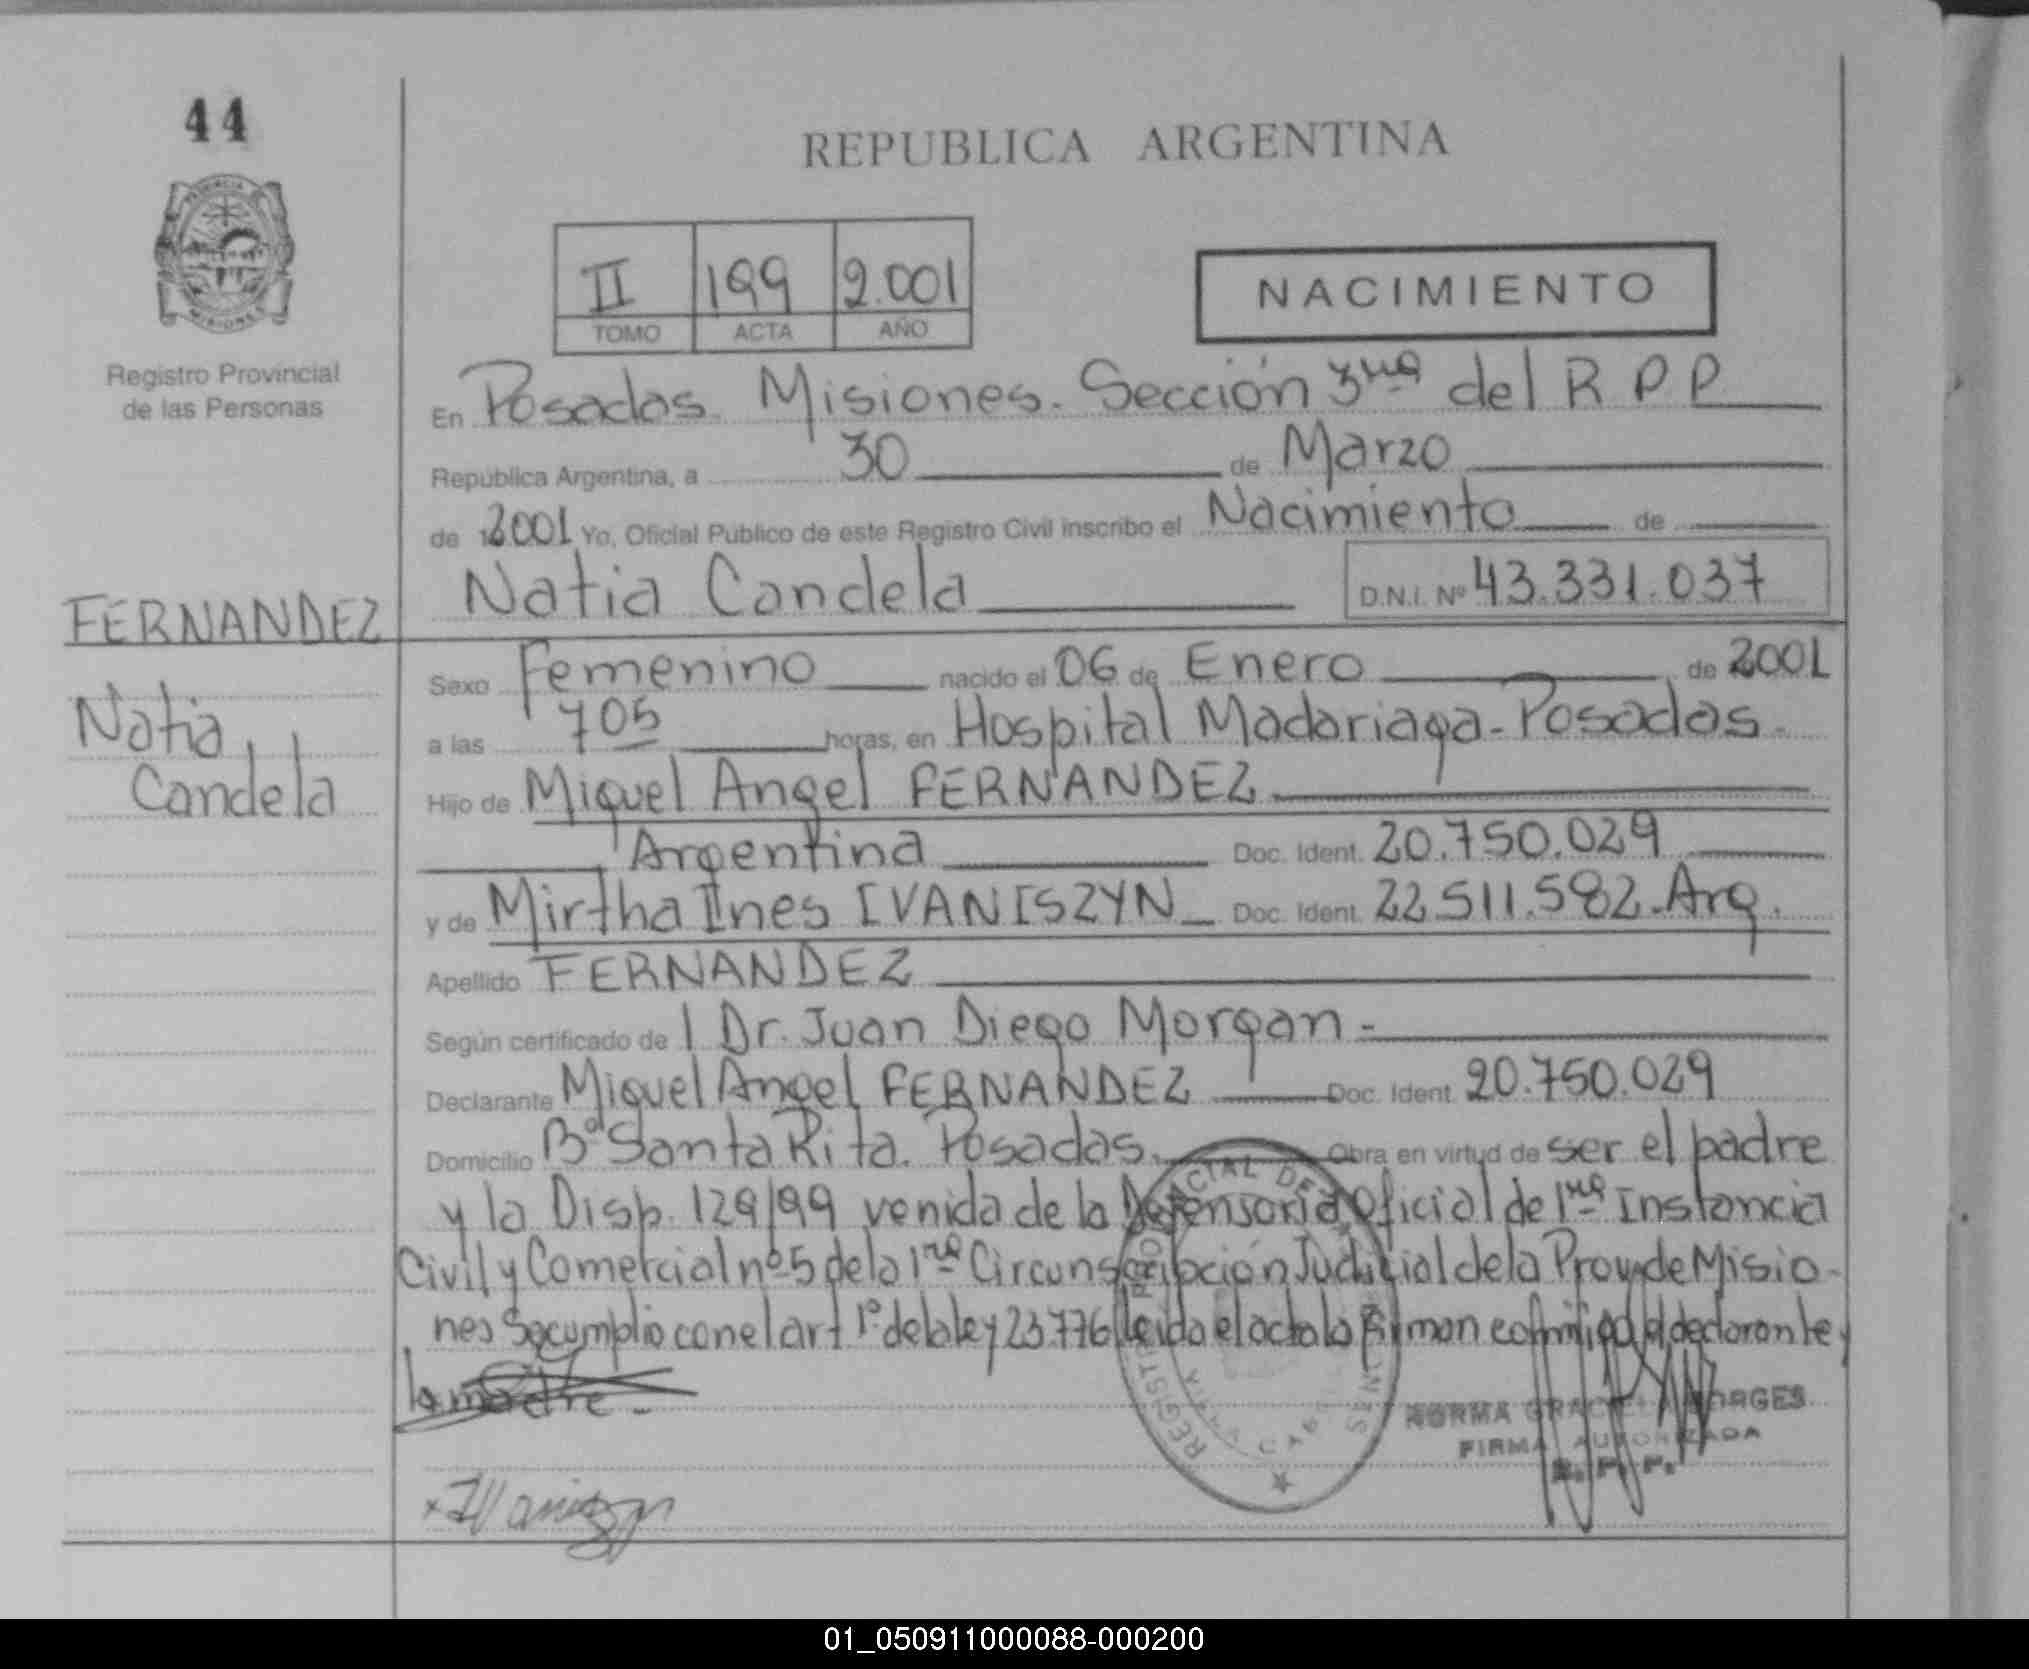 44
REPUBLICA ARGENTINA
II 199 2.001
TOMO ACTA AÑO
NACIMIENTO
Registro Provincial
de las Personas
En Posadas Misiones. Sección 3ra del R P P
República Argentina, a 30 de Marzo
de 2001 Yo, Oficial Público de este Registro Civil inscribo el Nacimiento de
Natia Candela D.N.I. Nº 43.331.037
FERNANDEZ
Natia
Candela
Sexo Femenino nacido el 06 de Enero de 2001
a las 705 horas, en Hospital Madariaga - Posadas.
Hijo de Miguel Angel FERNANDEZ
Argentina Doc. Ident. 20.750.029
y de Mirtha Ines IVANISZYN Doc. Ident. 22.511.582. Arg.
Apellido FERNANDEZ
Según certificado de l Dr. Juan Diego Morgan -
Declarante Miguel Angel FERNANDEZ Doc. Ident. 20.750.029
Domicilio Bº Santa Rita. Posadas. Obra en virtud de ser el padre
y la Disp. 129/99 venida de la Defensoria Oficial de 1ra Instancia
Civil y Comercial nº 5 de la 1ra Circunscripción Judicial de la Prov de Misio-
nes Se cumplio con el art 1º de la ley 23.776 leida el acta la firman conmigo el declarante y
la madre -
NORMA GRACIELA BORGES
FIRMA AUTORIZADA
R. P. P.
01_050911000088-000200